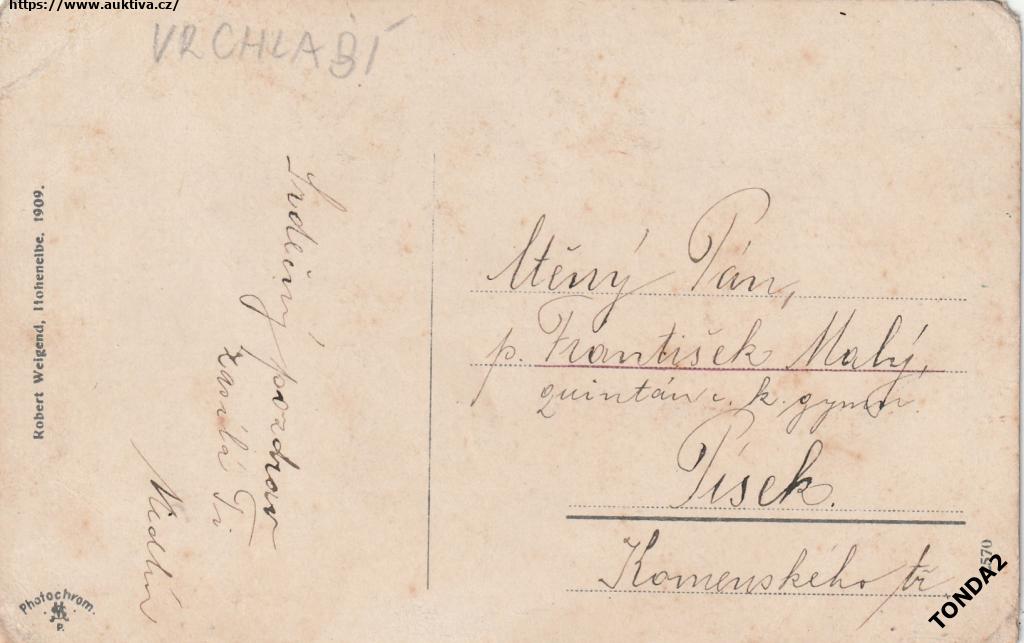 https://www.auktiva.cz/
VRCHLABÍ
Robert Weigend, Hohenelbe. 1909.
Srdečný pozdrav
zasílá Ti
Ctěný Pán,
p. František Malý,
quintán c. k. gymn.
Písek.
Komenského tř.
Photochrom.
P.
570
TONDA2